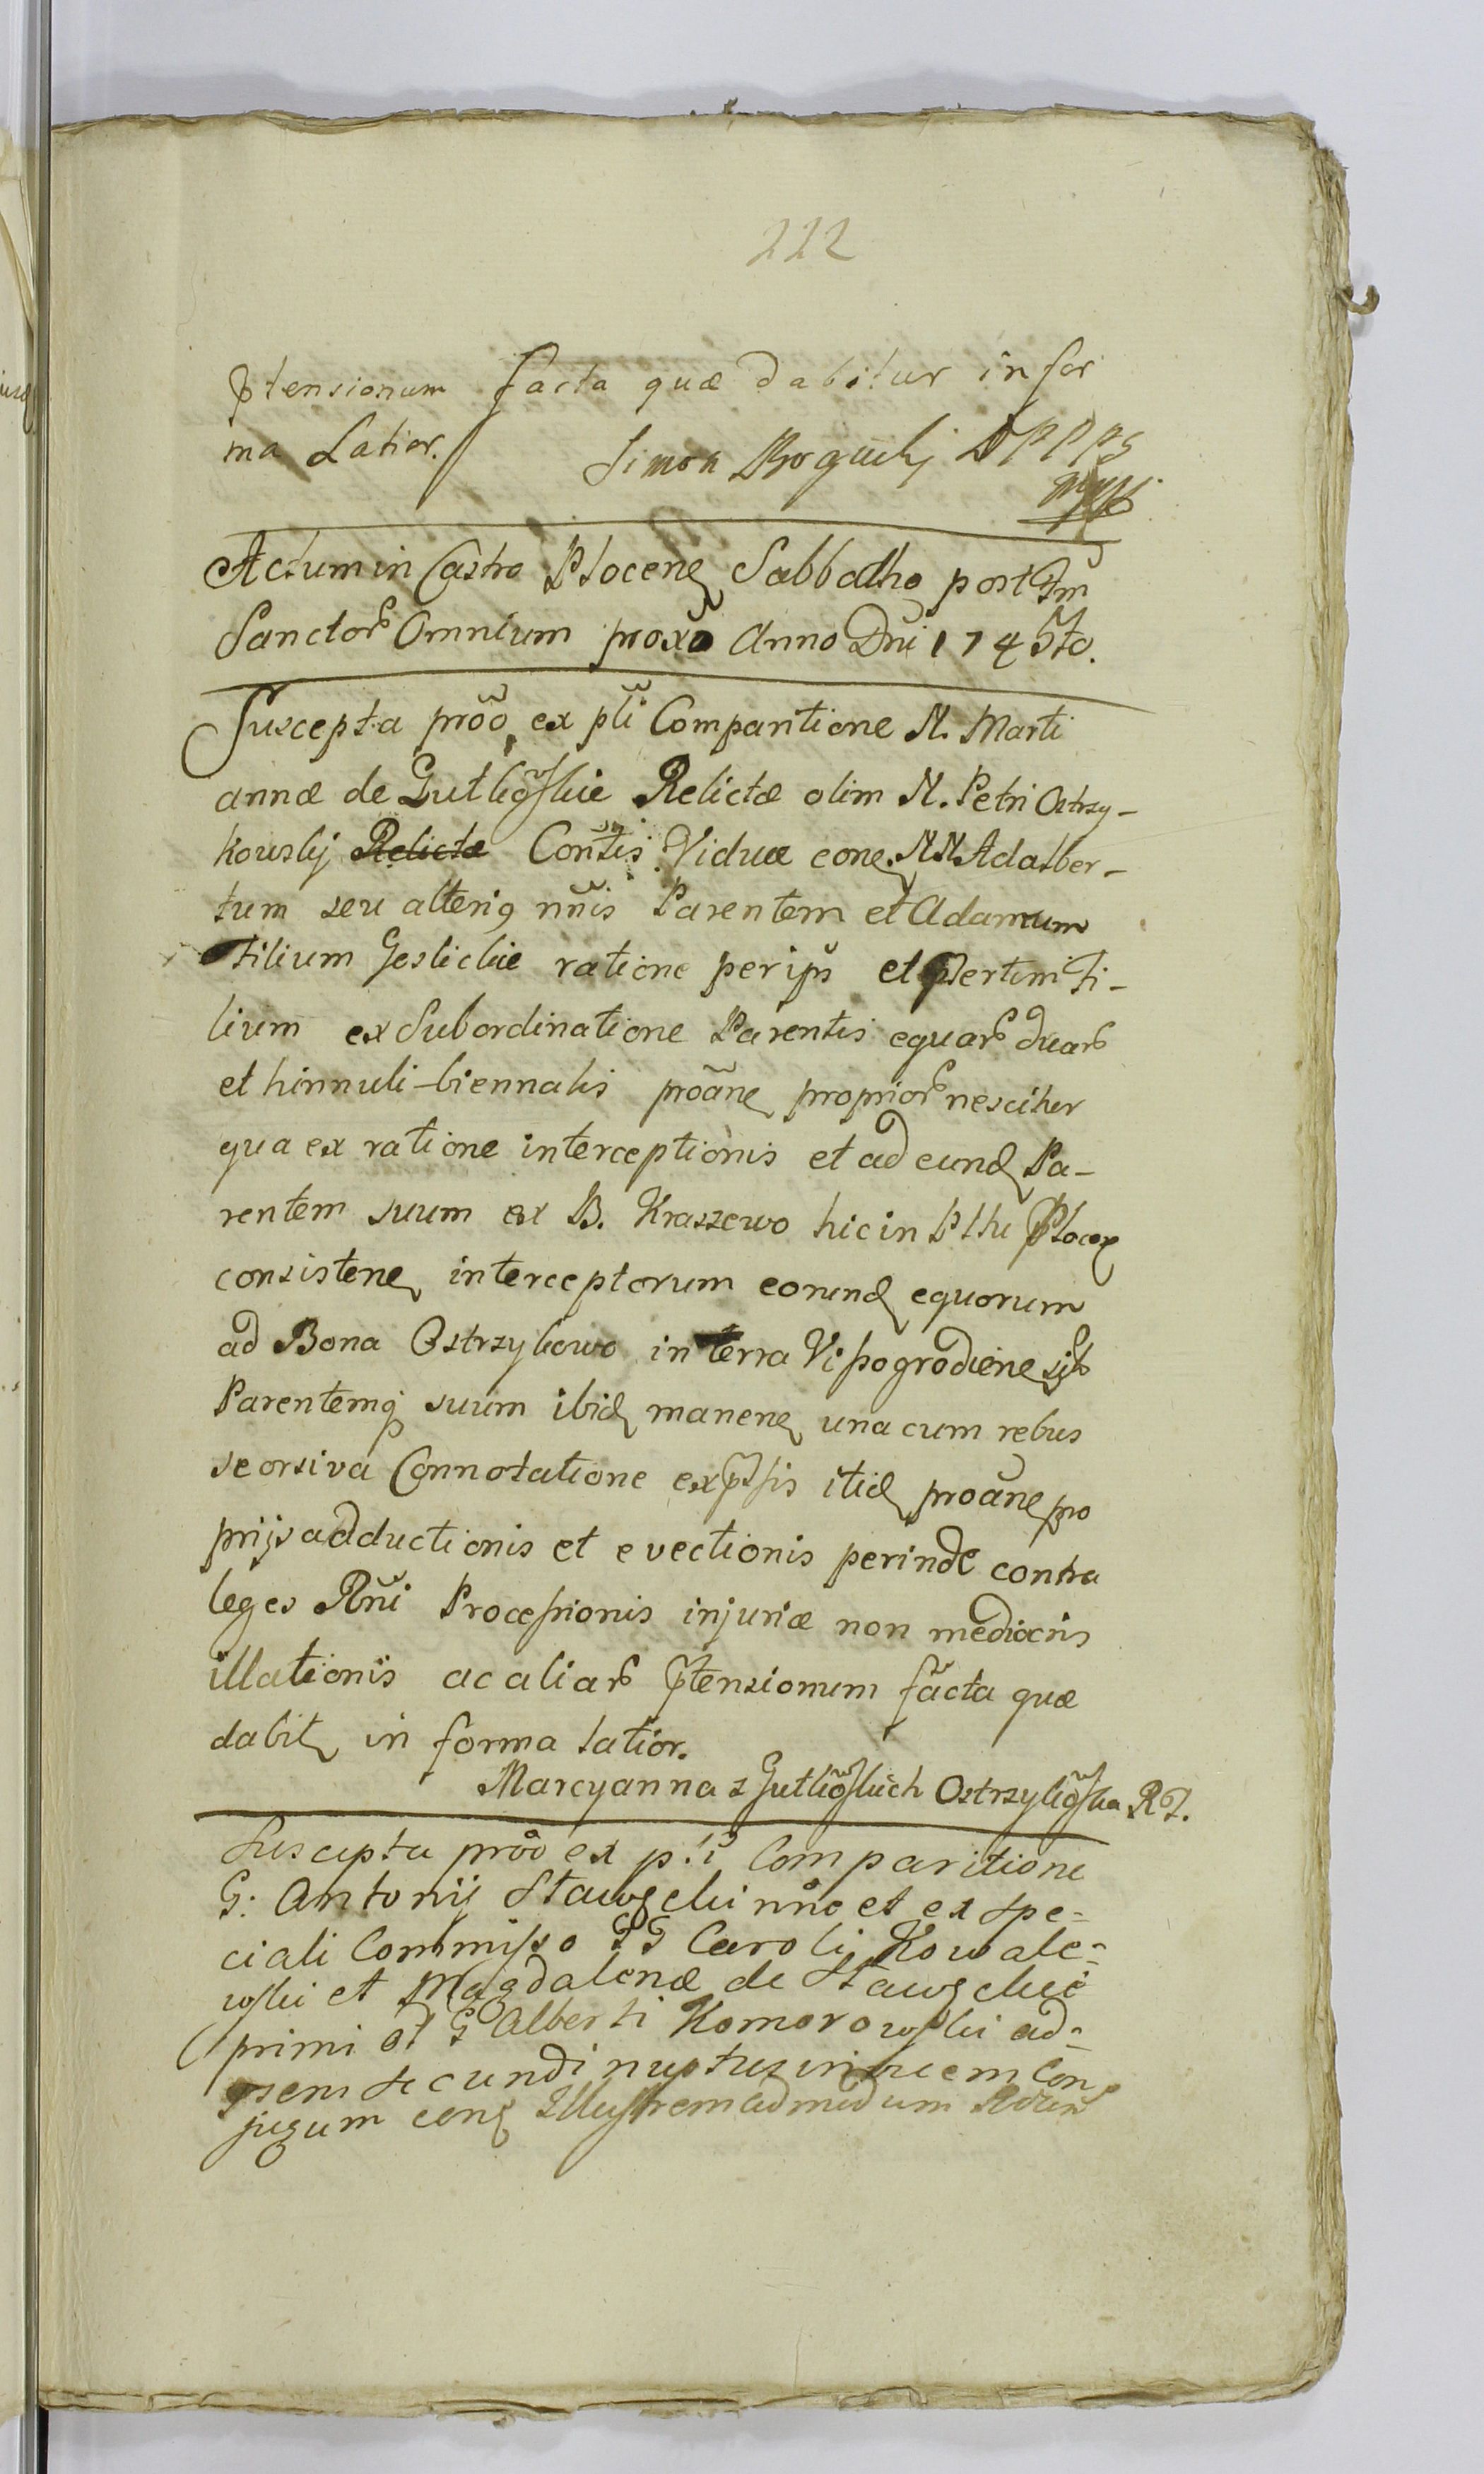 222
ptensionum facta quæ dabitur in for
ma Latior.
Simon
Actum in Castro Plocen Sabbatho post Fm
Sanctor Omnium proxo Anno Dni 174
Suscepta proõ ex pti Comparitione N. Marti
annæ de Gutkowskie Relictæ olim N. Petri Ostrzy-
kowskj Relictæ Contis Viduæ cone NN Adalber-
tum seu alterig nnis Parentem et Adamum
Filium Geslickie ratione per ips et Fi-
lium ex Subordinatione Parentis equar duar
et hinnuli biennalis proane proprior nescitur
qua ex ratione interceptionis et ad eund Pa-
rentem suum ex B. Kraszewo hic in Pttu Plocen
consisten interceptorum eorund equorum
ad Bona Ostrzykowo in terra Vissogrodien sit
Parentemq suum ibid manen una cum rebus
seorsiva Connotatione expssis itid proane pro
prijs adductionis et evectionis perinde contra
leges Rni Processionis injuriæ non mediocris
illationis ac aliar ptensionum facta quæ
dabit in forma latior.
Marcyanna z Gutkowskich Ostrzykowska
Suscepta proo ex pti Comparitione
G. Antonij nõe et ex spe=
ciali Commisso GG Caroli Kowale=
wski et Magdalenæ de
primi et G Alberti Komorowski ad=
secundi nuptus invicem Con
jugum cong Illustrem admodum Rdum